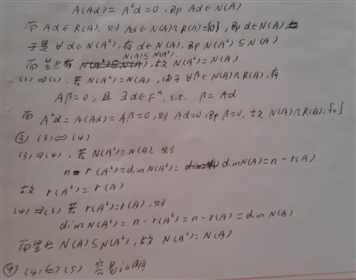 A(Aα) = A²α = 0, 即 Aα ∈ N(A)
而 Aα ∈ R(A), 故 Aα ∈ N(A)∩R(A) = {0}, 即 α ∈ N(A)
于是 ∀α ∈ N(A²), 有 α ∈ N(A), 即 N(A²) ⊆ N(A)
而显然有 N(A) ⊆ N(A²), 故 N(A²) = N(A)
(3) ⇒ (2), 若 N(A²) = N(A), 由于 ∀β ∈ N(A)∩R(A), 有
Aβ = 0, 且 ∃α ∈ Fⁿ, s.t. β = Aα
而 A²α = A(Aα) = Aβ = 0, 则 Aα = 0, 即 β = 0, 故 N(A)∩R(A) = {0}
③ (3) ⇔ (4)
(3) ⇒ (4), 若 N(A²) = N(A), 则
n - r(A²) = dim N(A²) = dim N(A) = n - r(A)
故 r(A²) = r(A)
(4) ⇒ (3) 若 r(A²) = r(A), 则
dim N(A²) = n - r(A²) = n - r(A) = dim N(A)
而显然 N(A) ⊆ N(A²), 故 N(A²) = N(A)
④ (4) ⇔ (5) 容易证明